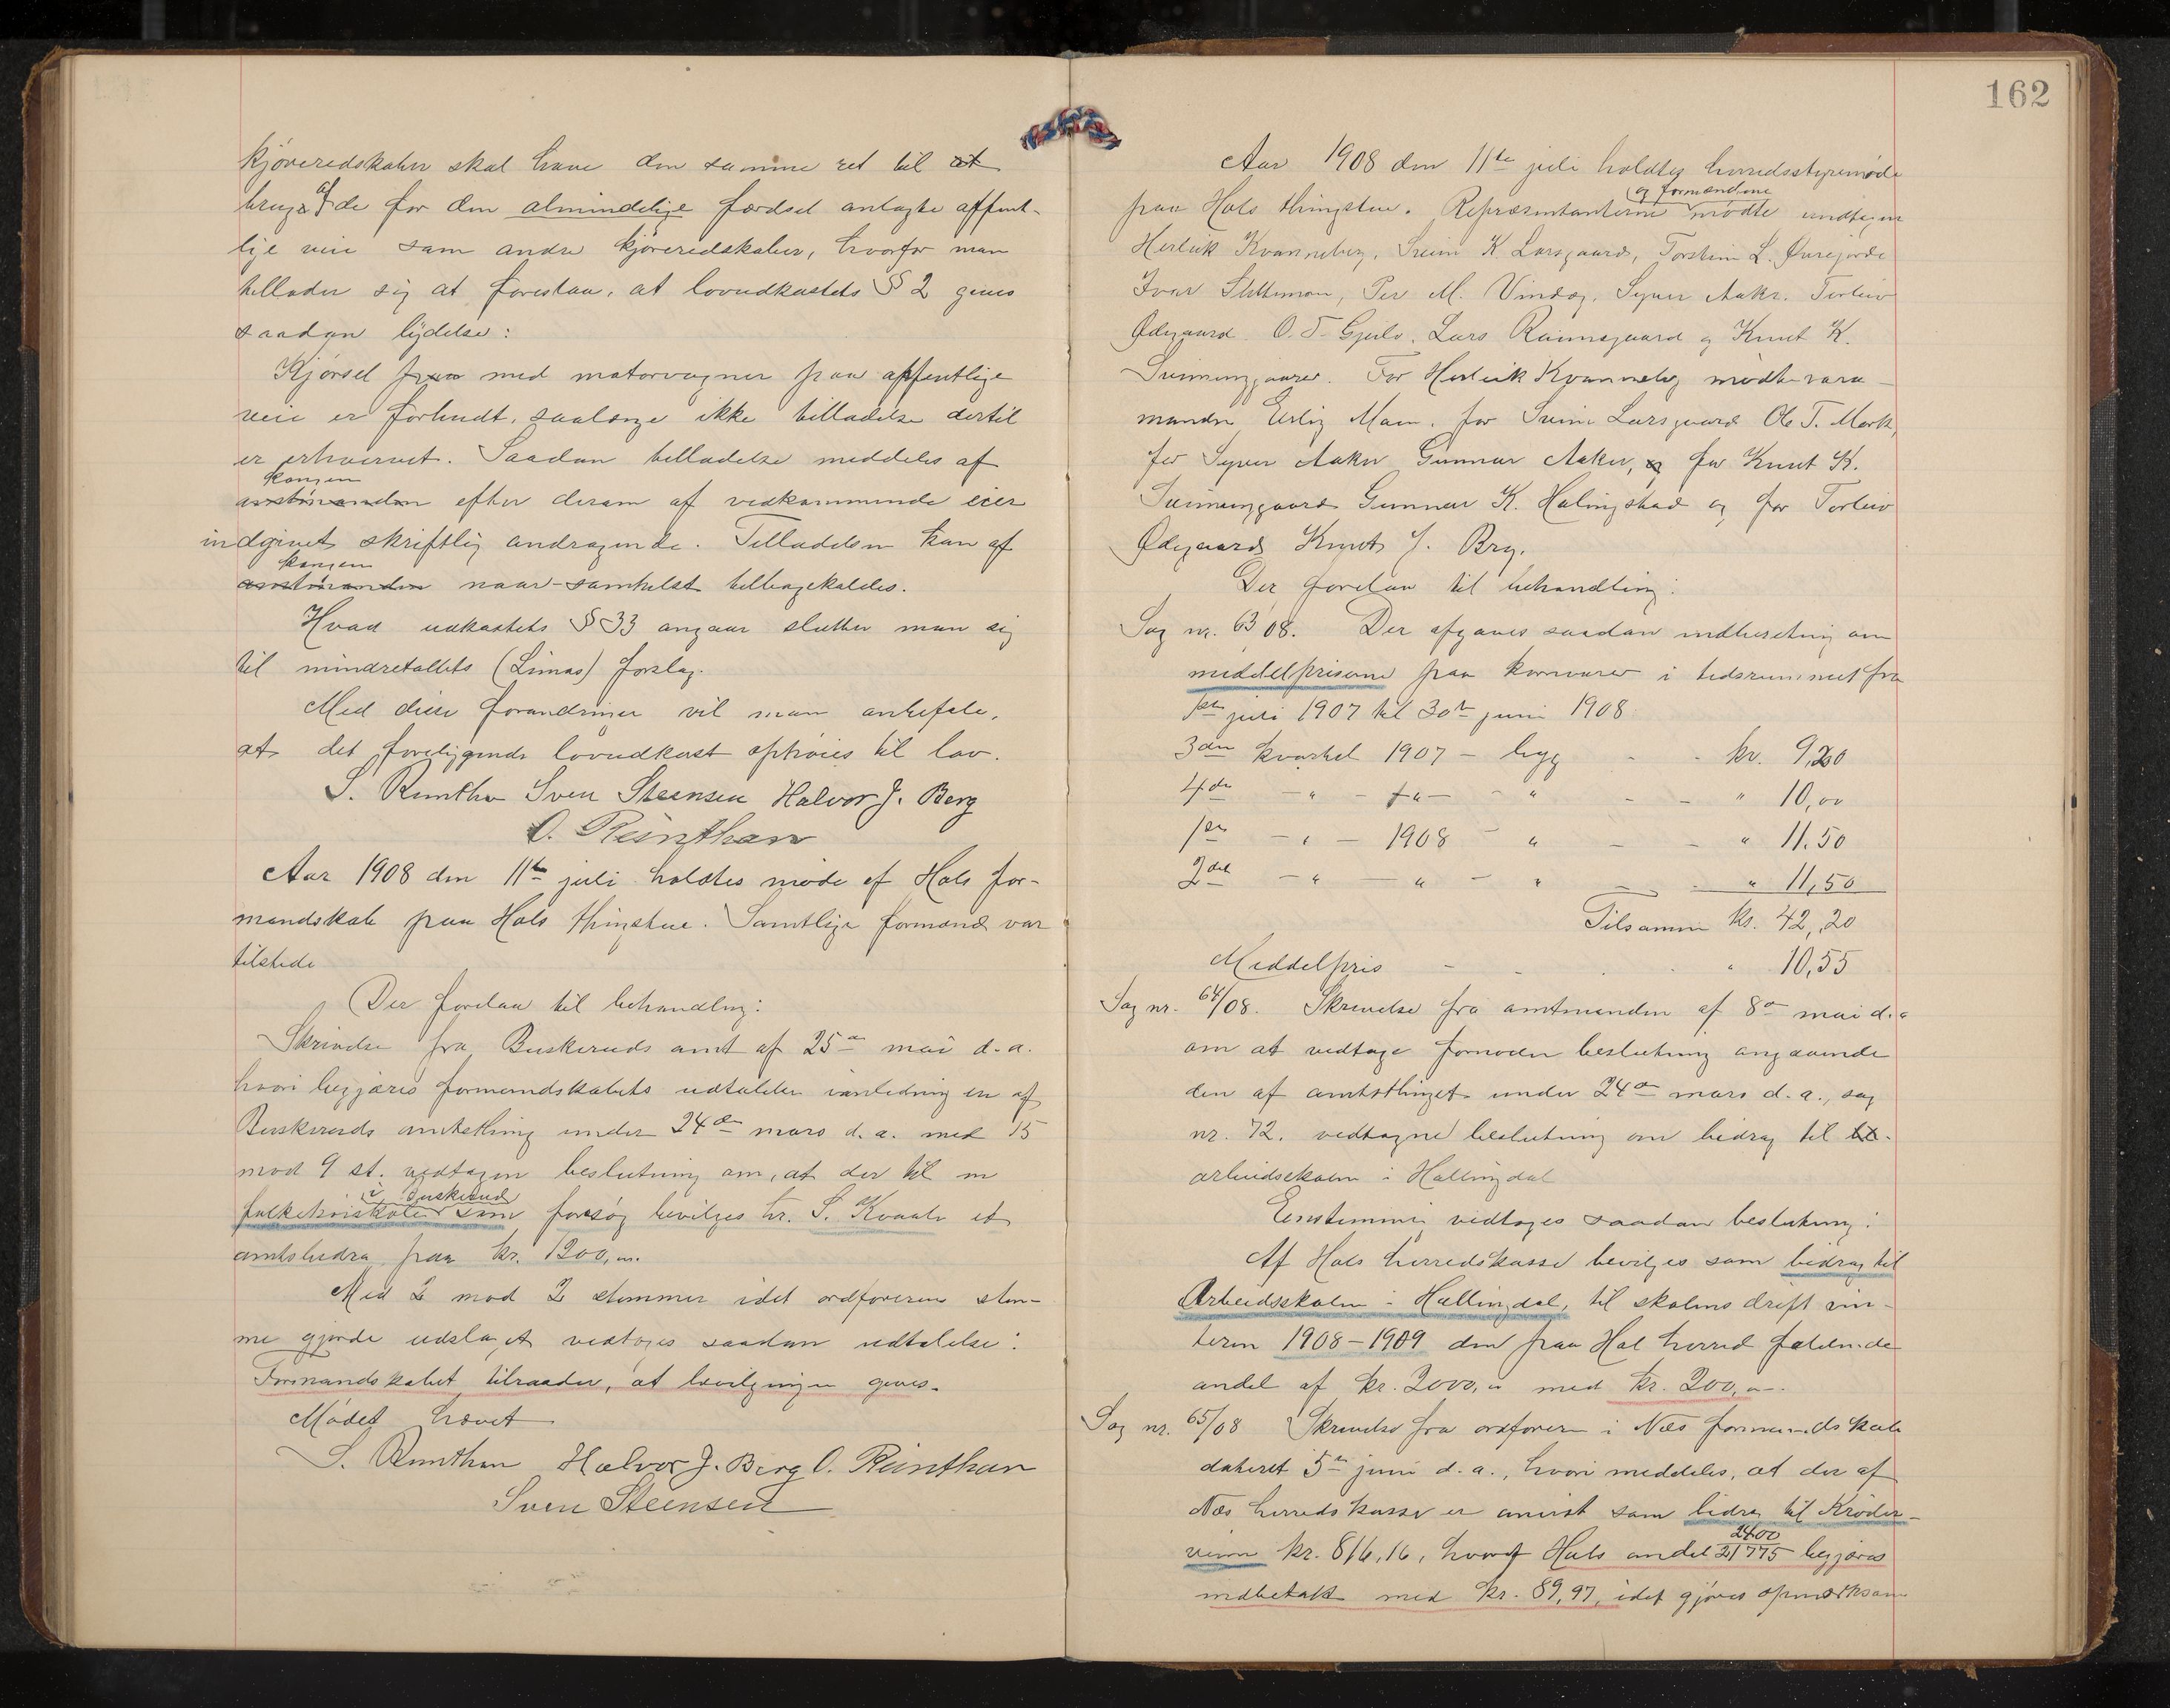 kjøreredskaber skal have den samme ret til at
bruge af de for den almindelige færdsel anlagte offent-
lige veie som andre kjøreredskaber, hvorfor man
tillader sig at foreslaa, at lovudkastets § 2 gives
saadan lydelse:
Kjørsel paa med motorvogner paa offentlige
veie er forbudt, saalænge ikke tilladelse dertil
er erhvervet. Saadan tilladelse meddeles af
kongen
amtmanden efter derom af vedkommende eier
indgivet skriftlig andragende. Tilladelsen kan af
kongen
amtmanden naar-somhelst tilbagekaldes.
Hvad udkastets § 33 angaar slutter man sig
til mindretallets (Linnes) forslag.
Med disse forandringer vil man anbefale,
at det foreliggende lovudkast ophøies til lov.
S. Reinthon Sven Steensen Halvor J. Berg
O. Reinthon
Aar 1908 den 11te juli holdtes møde af Hols for-
mandskab paa Hols thingstue. Samtlige formænd var
tilstede
Der forelaa til behandling:
Skrivelse fra Buskeruds amt af 25de mai d.a.
hvori begjæres formandskabets udtalelse i anledning en af
Buskeruds amtsthing under 24de mars d.a. med 15
mod 9 st. vedtagen beslutning om, at der til en
i Buskerud
folkehøiskole som forsøg bevilges hr. S. Kvaale et
amtsbidrag paa kr. 1200,00.
Med 2 mod 2 stemmer idet ordførerens stem-
me gjorde udslaget vedtoges saadan udtalelse:
Formandskabet tilraader, at bevilgningen gives.
Mødet hævet
S. Reinthon Halvor J. Berg O. Reinthon
Sven Steensen
162
Aar 1908 den 11te juli holdtes herredsstyremøde
og formændene
paa Hols thingstue. Repræsentanterne mødte undtagen
Herleik Kvanneberg, Svein K Larsgaard, Torstein L. Øvrejorde
Ivar Slettemoen, Per M. Vindeg, Syver Aaker, Torleiv
Ødegaard O. T. Gjeilo, Lars Raunsgaard og Knut K.
Sveinunggaard. For Herleik Kvanneberg mødte vara-
manden Erling Moen, for Svein Larsgaard Ole T. Mork,
for Syver Aaker Gunnar Aaker, og for Knut K.
Sveinunggaard Gunnar K. Halingstad og for Torleiv
Ødegaard Knut J. Bry.
Der forelaa til behandling:
Sag nr. 63/08. Der afgaves saadan indberetning om
middelpriserne paa kornvarer i tidsrummet fra
1ste juli 1907 til 30te juni 1908
3die kvartal 1907 - byg - - kr. 9,20
4de - " - - " - - " - - " 10,00
1ste - " - 1908 - " - - " 11,50
2det - " - " - " - - " 11,50
Tilsammen kr. 42,20
Middelpris - - . . " 10,55
Sag nr. 64/08. Skrivelse fra amtmanden af 8de mai d.a
om at vedtage fornøden beslutning angaaende
den af amtsthinget under 24de mars d.a., sag
nr. 72. vedtagne beslutning om bidrag til
arbeidsskolen i Hallingdal
Eenstemmig vedtoges saadan beslutning:
Af Hols herredskasse bevilges som bidrag til
Arbeidsskolen i Hallingdal, til skolens drift vin-
teren 1908-1909 den paa Hol herred faldende
andel af kr. 2000,00 med kr. 200,00.
Sag nr. 65/08 Skrivelse fra ordføreren i Næs formandskab
dateret 5te juni d.a., hvori meddeles, at der af
Næs herredskasse er anvist som bidrag til Krøder-
2400
veien kr. 816,16, hvoraf Hols andel 21775 begjæres
indbetalt med kr. 89,97, idet gjøres opmærksom